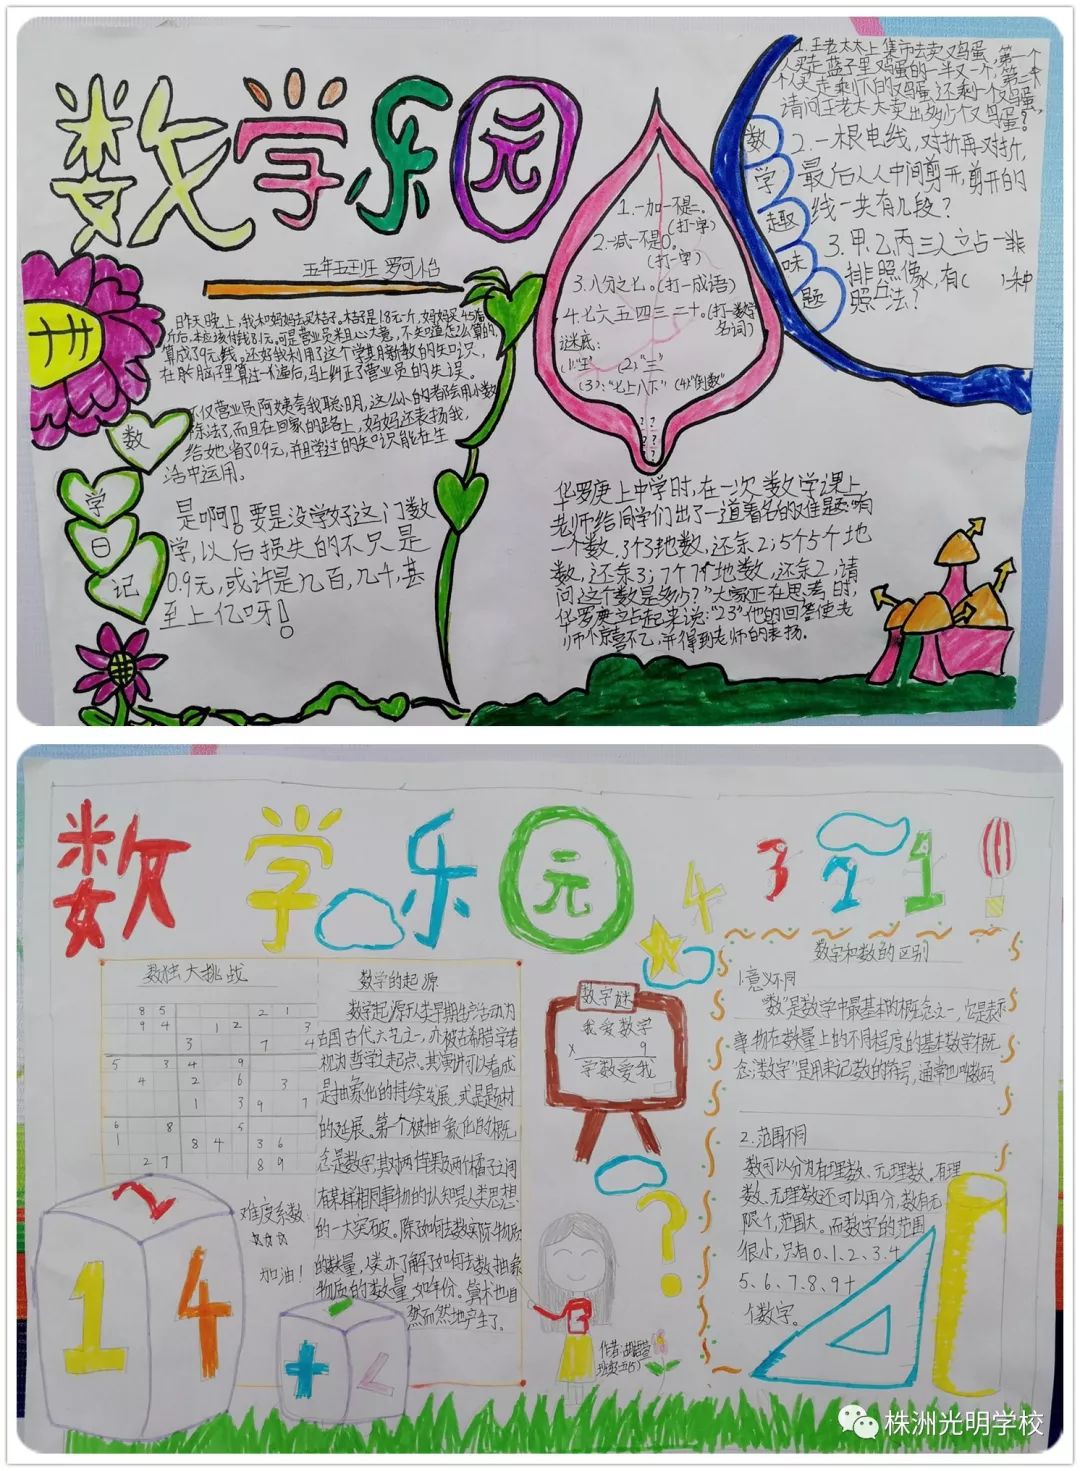 数学乐园
五年五班 罗可怡
昨天晚上,我和妈妈去买桔子。桔子是1.8元一斤,妈妈买4.5
斤后,本应该付钱8.1元。可是营业员粗心大意,不知道怎么算的,
算成了9元钱。还好我利用了这个学期新教的知识,
在脑子里算过一遍后,马上纠正了营业员的失误。
不仅营业员阿姨夸我聪明,这么小的者都会用小数
除法了,而且在回家的路上,妈妈还表扬我,
给她省了0.9元,并且学过的知识能在生
活中运用。
是啊!要是没学好这门数
学,以后损失的不只是
0.9元,或许是几百,几千,甚
至上亿呀!
数
学
日
记
1.一加一不是二。
(打一字)
2.一减一不是0。
(打一字)
3.八分之七。(打一成语)
4.七六五四三二十。(打一数学
名词)
谜底:
(1)“王” (2)“三”
(3):“七上八下” (4)“倒数”
?
?
?
?
数
学
趣
味
题
1.王老太太上集市去卖鸡蛋,第一个
人买走篮子里鸡蛋的一半又一个,第二
个人买走剩下的鸡蛋,还剩一个鸡蛋,
请问王老太太卖出多少个鸡蛋?
2.一根电线,对折再对折,
最后从中间剪开,剪开的
线一共有几段?
3.甲乙丙三人立占一排
排照像,有( )种
照法?
华罗庚上中学时,在一次数学课上
老师给同学们出了一道著名的难题“有
一个数,3个3地数,还余2;5个5个地
数,还余3;7个7个地数,还余2,请
问这个数是多少?”大家正在思考时,
华罗庚立占起来说:“23”他的回答使老
师惊喜不已,并得到老师的表扬。
数学乐园
4 3 2 1
数独大挑战
8 5 2 1
9 4 1 2 3
3 7 4
5 3 4 9
4 2 6 3
1 3 9 7
6 8 5
1 8 4 3 6
2 7 8 9
难度系数
加油!
数学的起源
数学起源于人类早期生产活动为
中国古代六艺之一,亦被古希腊学者
视为哲学之起点。其演进可以看成
是抽象化的持续发展,或是题材
的延展。第一个被抽象化的概
念是数字,其对两个苹果及两个橘子之间
有某样相同事物的认知是人类思想
的一大突破。除了知道如何去数实际物质
的数量,人类亦了解了如何去数抽象
物质的数量,如年份。算术也自
然而然地产生了。
数字谜
我爱数学
× 9
学数爱我
?
班级:五(5)
数字和数的区别
1.意义不同
“数”是数学中最基本的概念之一,它是表示
事物在数量上的不同程度的基本数学概
念;“数字”是用来记数的符号,通常也叫数码
2.范围不同
数可以分为有理数、无理数。有理
数、无理数还可以再分,数有无
限个,范围大。而数字的范围
很小,只有0、1、2、3、4
5、6、7、8、9十
个数字。
2
1 4
+ <
株洲光明学校